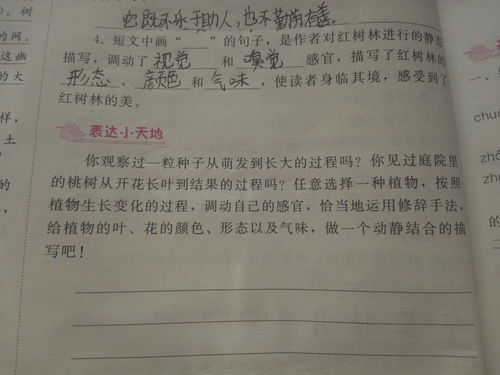 也既不乐于助人,也不勤劳有善。
4. 短文中画“____”的句子,是作者对红树林进行的静态
描写,调动了 视觉 和 嗅觉 感官,描写了红树林的
形态、颜色 和 气味,使读者身临其境,感受到了
红树林的美。
表达小天地
你观察过一粒种子从萌发到长大的过程吗?你见过庭院里
的桃树从开花长叶到结果的过程吗?任意选择一种植物,按照
植物生长变化的过程,调动自己的感官,恰当地运用修辞手法,
给植物的叶、花的颜色、形态以及气味,做一个动静结合的描
写吧!
)。树
的网。
这幽
的大
样,
土
的
,
一、
chu
zhē
zhu
的
二